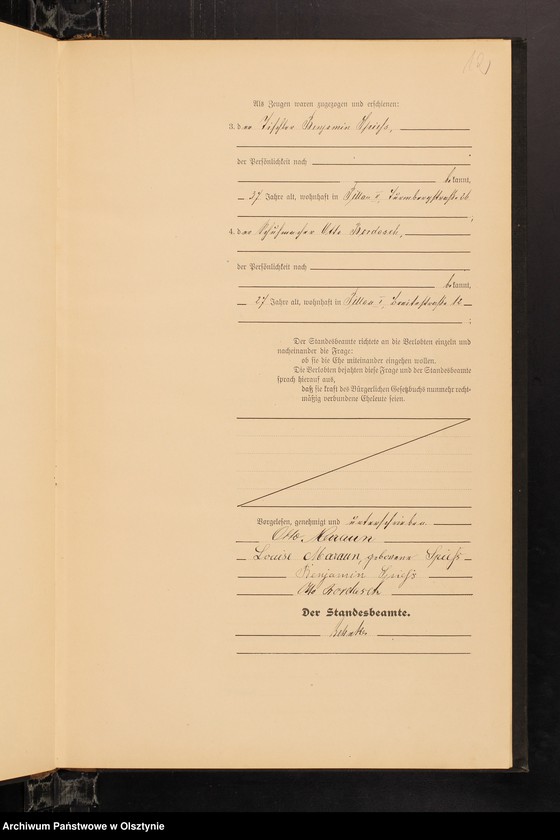 Als Zeugen waren zugezogen und erschienen:
3. der Tischler Benjamin Spieß,
der Persönlichkeit nach
bekannt,
37 Jahre alt, wohnhaft in Pillau I,
4. der Schuhmacher Otto Kordesch,
der Persönlichkeit nach
bekannt,
27 Jahre alt, wohnhaft in Pillau I,
Der Standesbeamte richtete an die Verlobten einzeln und
nacheinander die Frage:
ob sie die Ehe miteinander eingehen wollen.
Die Verlobten bejahten diese Frage und der Standesbeamte
sprach hierauf aus,
daß sie kraft des Bürgerlichen Gesetzbuchs nunmehr recht-
mäßig verbundene Eheleute seien.
Vorgelesen, genehmigt und unterschrieben
Otto Maraun
Louise Maraun, geborene Spieß
Benjamin Spieß
Otto Kordesch
Der Standesbeamte.
Archiwum Państwowe w Olsztynie